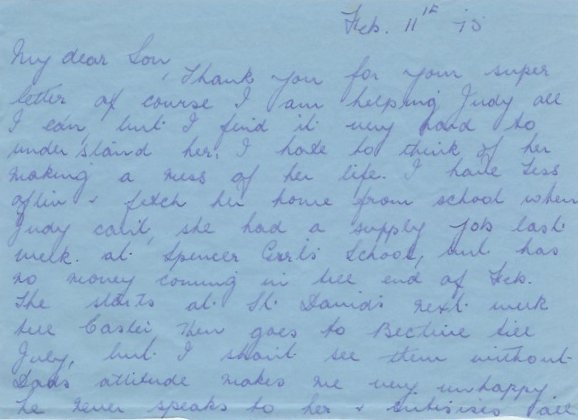 Feb. 11th 75
My dear Son,
Thank you for your super
letter of course I am helping Judy all
I can, but I find it very hard to
understand her. I hate to think of her
making a mess of her life. I have Tess
often & fetch her home from school when
Judy can't, she had a supply job last
week at Spencer Girls School, but has
no money coming in till end of Feb.
She starts at St. David's next week
till Easter then goes to till
July, but I shan't see them without
Dads attitude makes me very unhappy
he never speaks to her & all